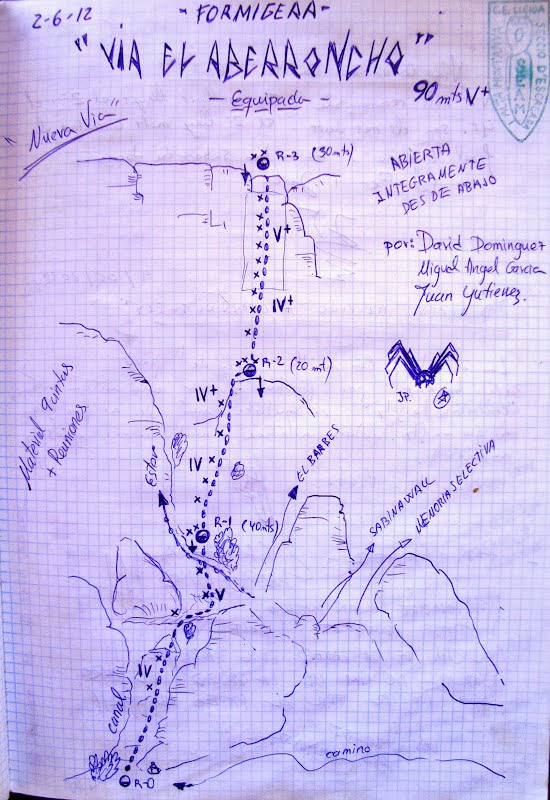 2-6-12
- FORMIGERA -
"VÍA EL ABERRONCHO"
- Equipada -
90 mts V+
"Nueva Vía"
R-3 (30mts)
ABIERTA
INTEGRAMENTE
DES DE ABAJO
por: David Dominguez
Miguel Angel Garcia
Juan Gutierrez.
V+
IV+
R-2 (20mt)
IV+
Material 9 cintas
+ Reuniones
JP.
Estar
IV
EL BARBES
SABINAWALL
MEMORIA SELECTIVA
R-1 (40mts)
V
IV
canal
camino
R-0